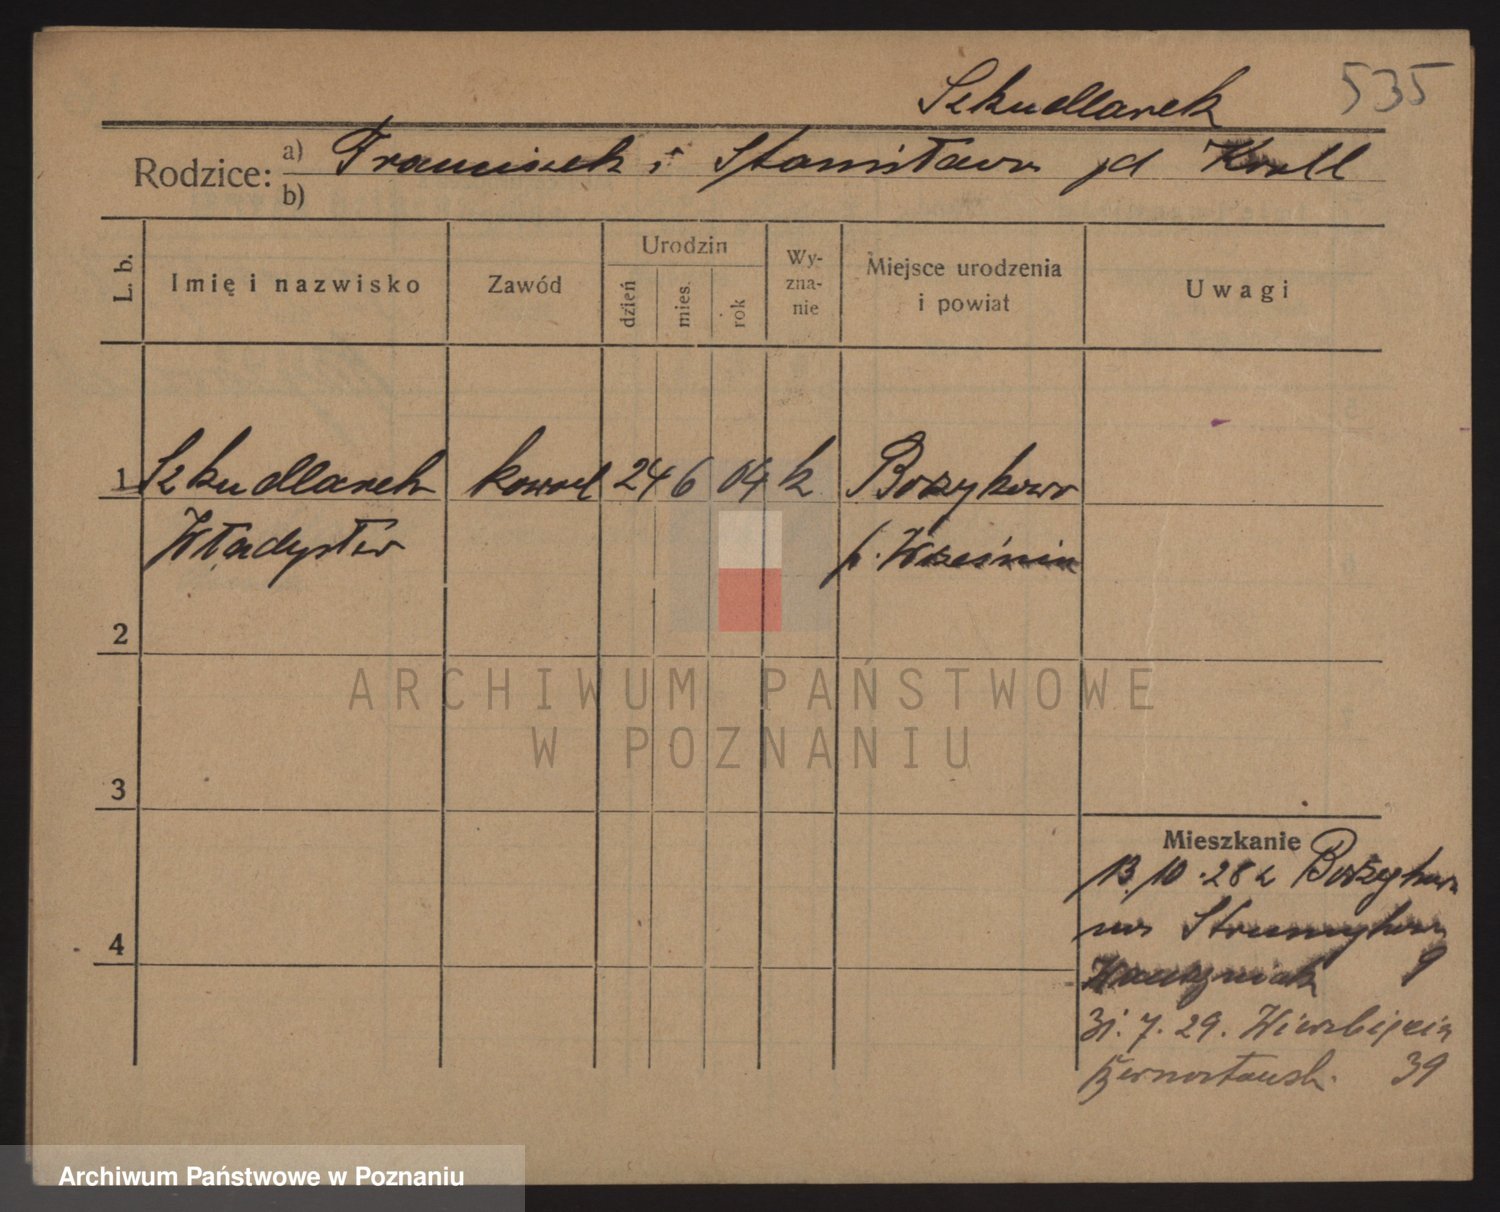 535
Szkudlarek
Rodzice: a) Franciszek i Stanisława zd Kroll
b)
L. b. Imię i nazwisko Zawód Urodzin dzień mies. rok Wy-zna-nie Miejsce urodzenia i powiat Uwagi
1 Szkudlarek kowal 24 6 04 k Bożykowo
Władysław p. Września
2
ARCHIWUM PAŃSTWOWE
W POZNANIU
3
Mieszkanie
13.10.28 z Bożykowa
na Strumykowa
9
4
31.7.29. Wierzbięcin
39
Archiwum Państwowe w Poznaniu